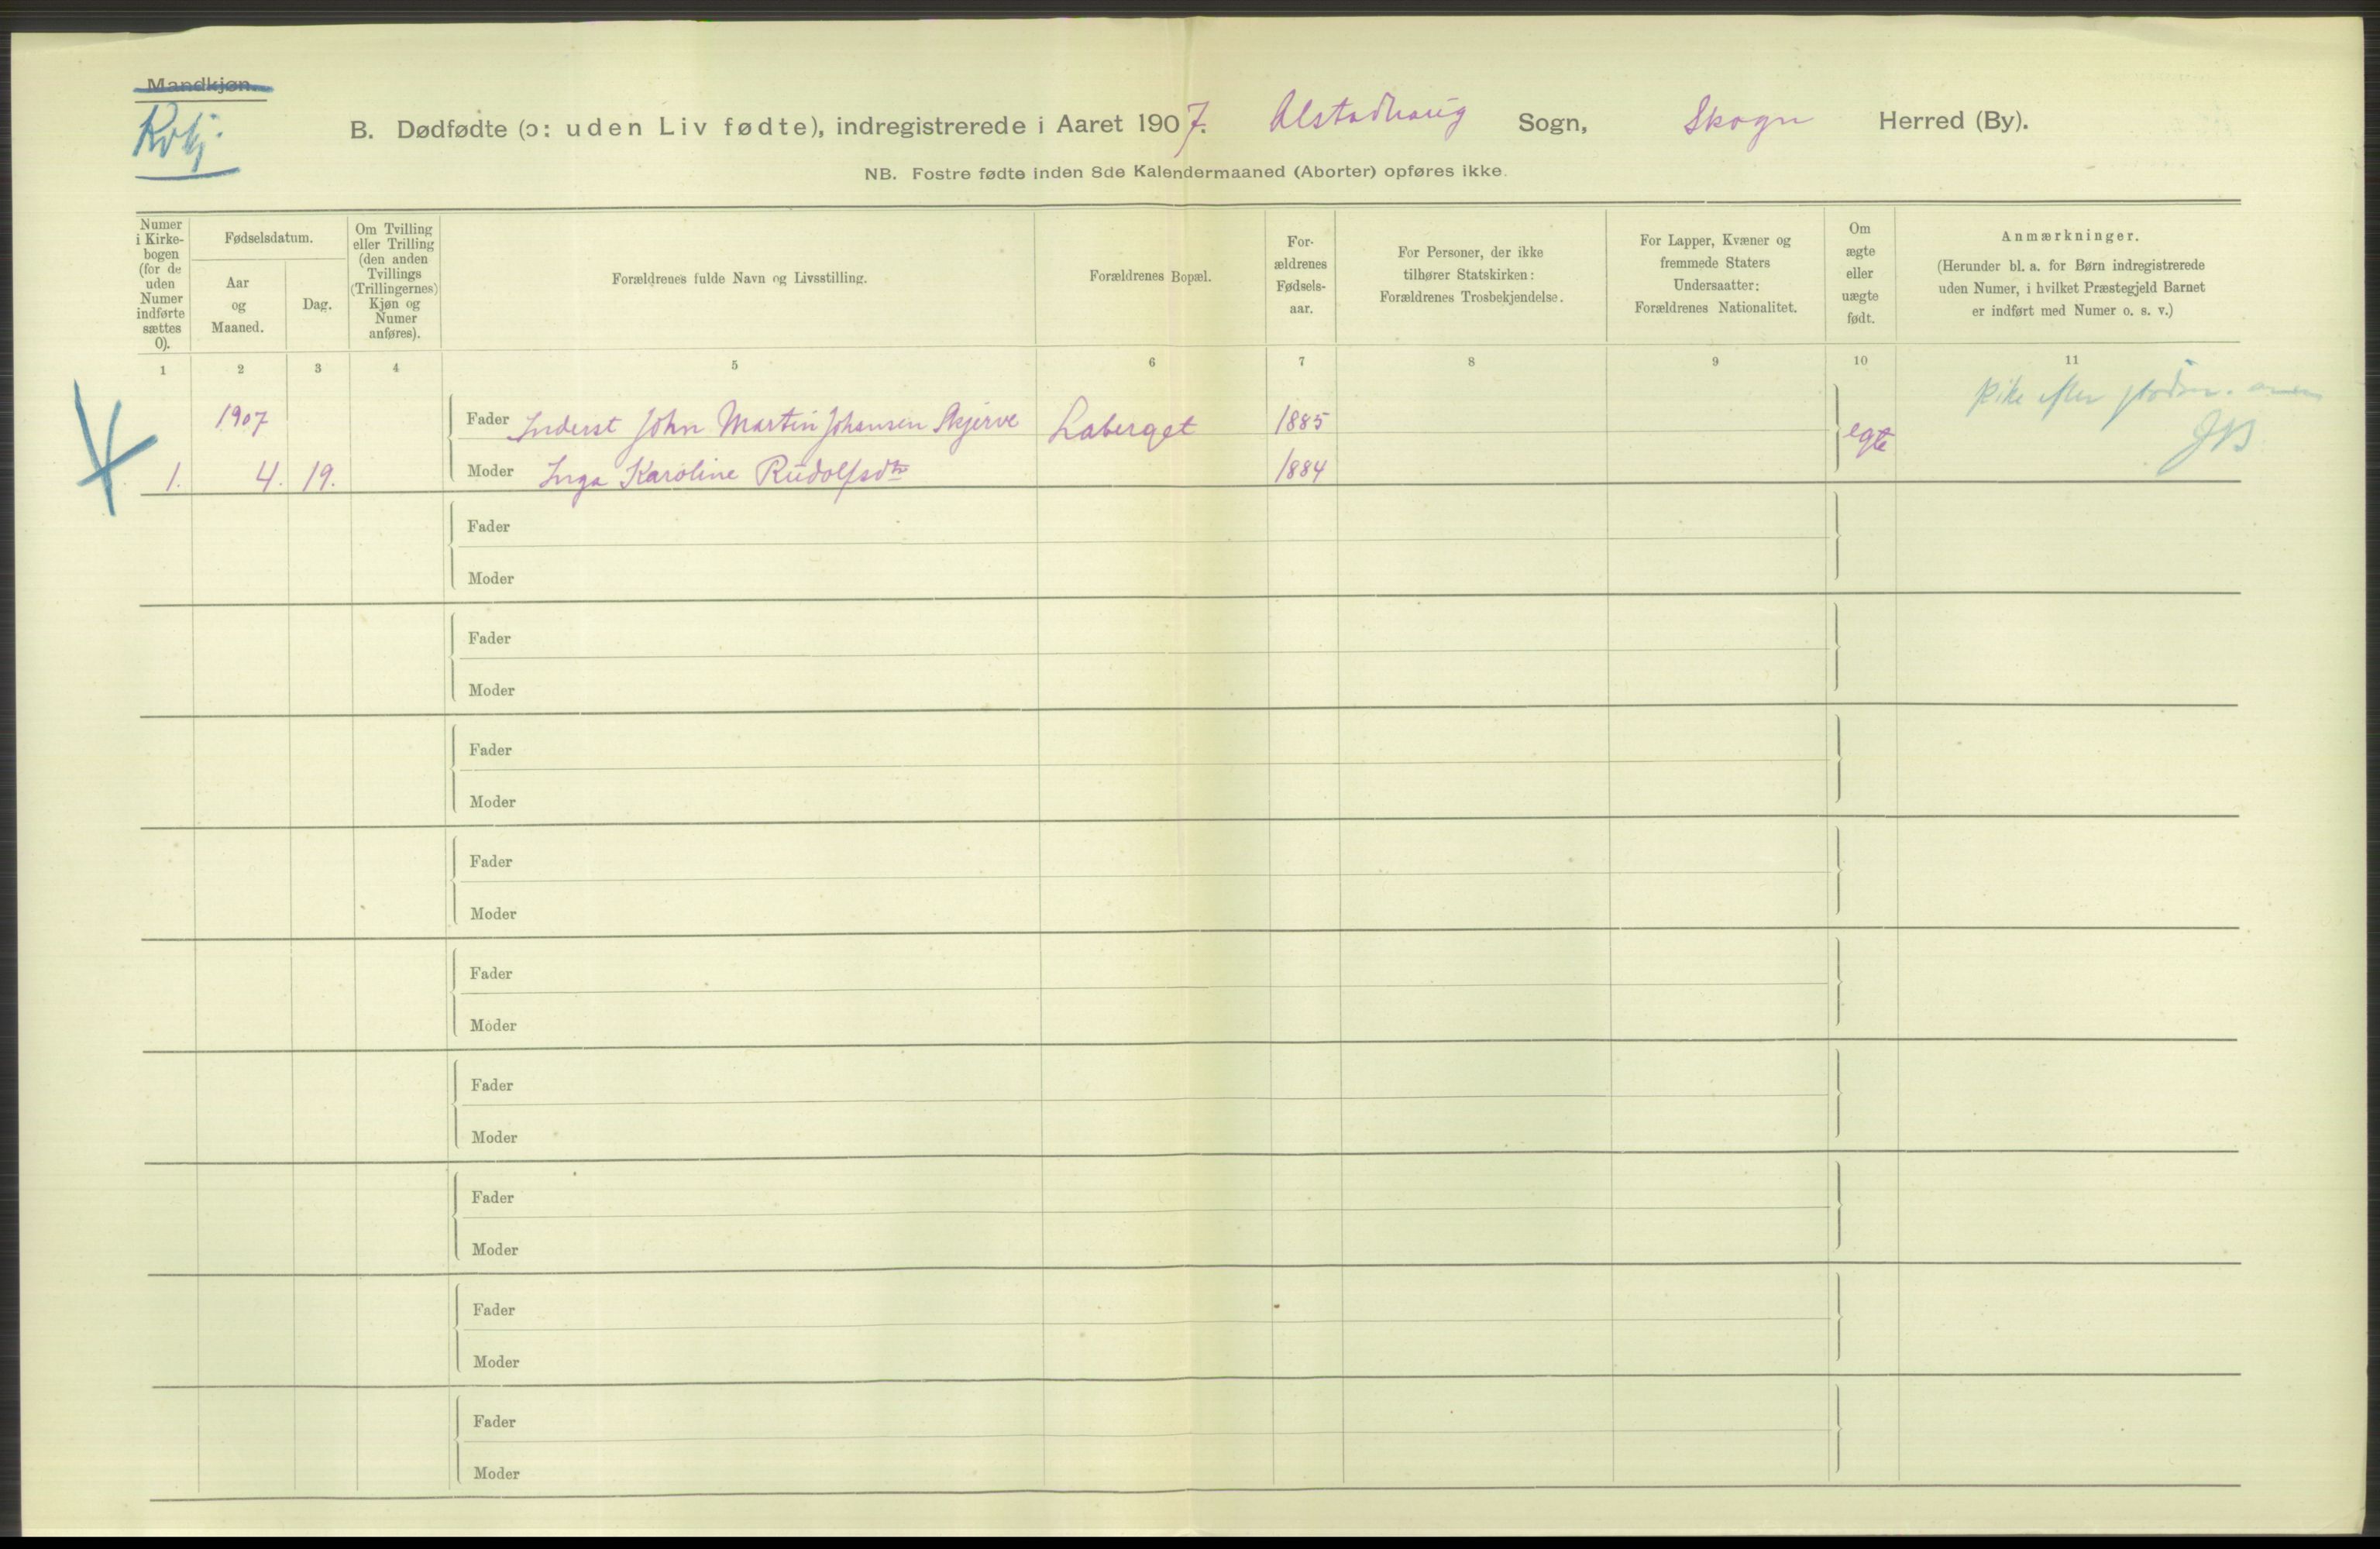 Mandkjøn.
Kvkj.
B. Dødfødte (ɔ: uden Liv fødte), indregistrerede i Aaret 1907. Alstadhaug Sogn, Skogn Herred (By).
NB. Fostre fødte inden 8de Kalendermaaned (Aborter) opføres ikke.
Numer
i Kirke-
bogen
(for de
uden
Numer
indførte
sættes
0).
Fødselsdatum.
Aar
og
Maaned.
Dag.
Om Tvilling
eller Trilling
(den anden
Tvillings
(Trillingernes)
Kjøn og
Numer
anføres).
Forældrenes fulde Navn og Livsstilling.
Forældrenes Bopæl.
For-
ældrenes
Fødsels-
aar.
For Personer, der ikke
tilhører Statskirken:
Forældrenes Trosbekjendelse.
For Lapper, Kvæner og
fremmede Staters
Undersaatter:
Forældrenes Nationalitet.
Om
ægte
eller
uægte
født.
Anmærkninger.
(Herunder bl. a. for Børn indregistrerede
uden Numer, i hvilket Præstegjeld Barnet
er indført med Numer o. s. v.)
1 2 3 4 5 6 7 8 9 10 11
1907 Fader Inderst John Martin Johansen Skjerve Laberget 1885 egte Pike efter
1. 4. 19. Moder Inga Karoline Rudolfsdtr 1884 JB
Fader
Moder
Fader
Moder
Fader
Moder
Fader
Moder
Fader
Moder
Fader
Moder
Fader
Moder
Fader
Moder
Fader
Moder